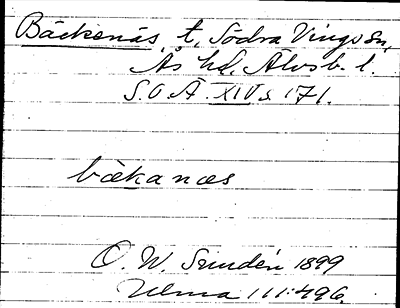 Bäckenäs, t. Södra Vings sn,
Ås hd, Älvsb. l.
S.O.Ä. XIV s 171.
bäkanæs
O. W. Sundén 1899
Ulma 111:496.